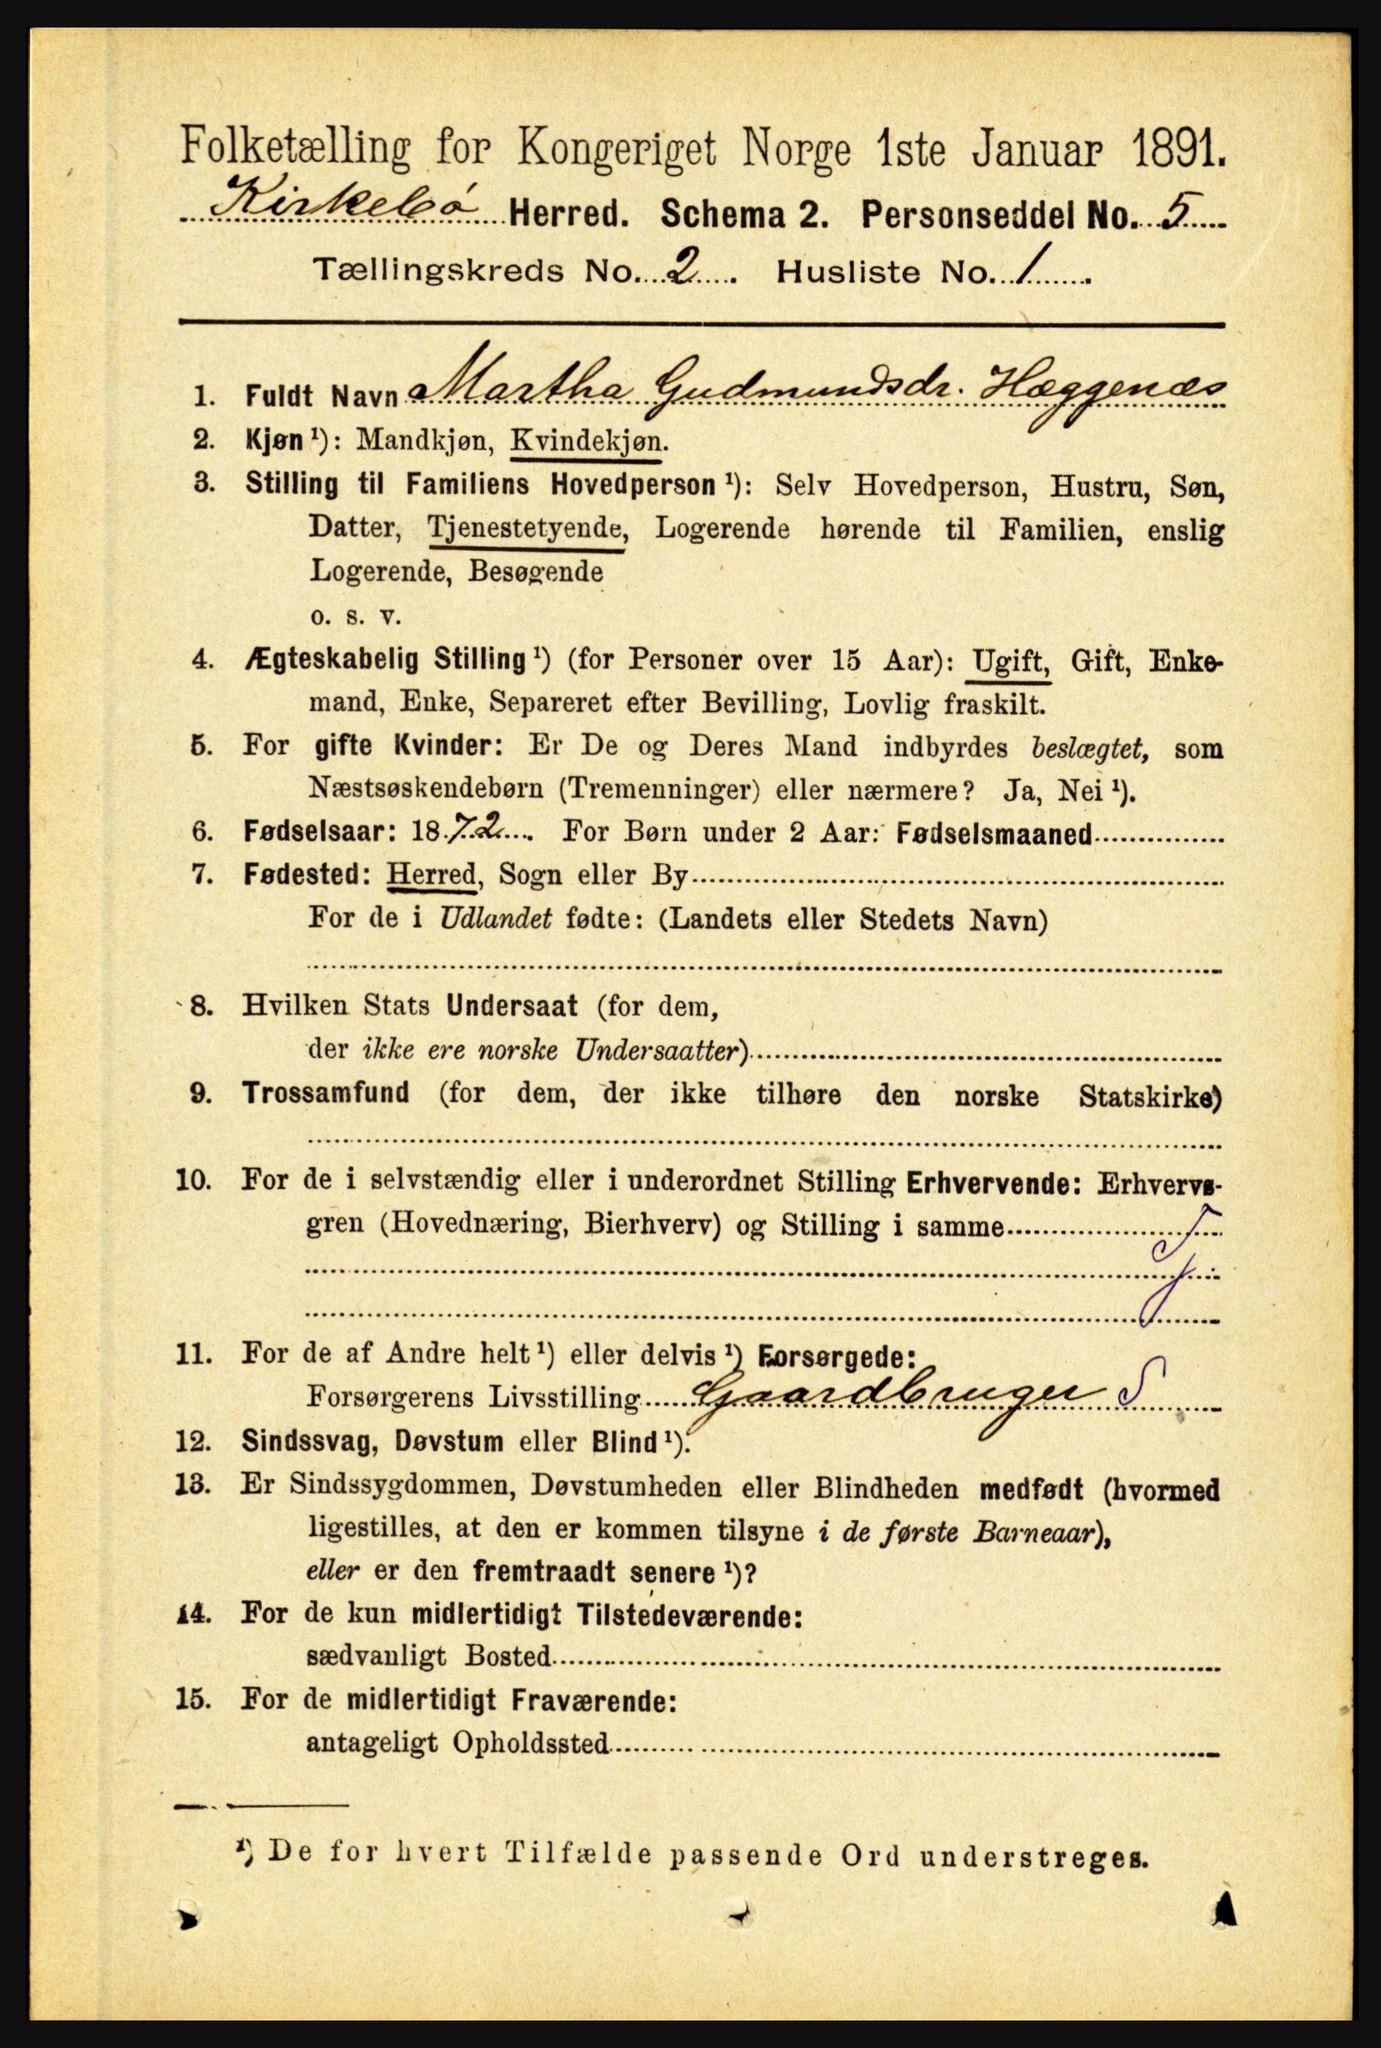 Folketælling for Kongeriget Norge 1ste Januar 1891.
Kirkebø Herred. Schema 2. Personseddel No. 5
Tællingskreds No. 2. Husliste No. 1
1. Fuldt Navn Martha Gudmundsdr. Hæggenæs
2. Kjøn ¹): Mandkjøn, Kvindekjøn.
3. Stilling til Familiens Hovedperson ¹): Selv Hovedperson, Hustru, Søn,
Datter, Tjenestetyende, Logerende hørende til Familien, enslig
Logerende, Besøgende
o. s. v.
4. Ægteskabelig Stilling ¹) (for Personer over 15 Aar): Ugift, Gift, Enke-
mand, Enke, Separeret efter Bevilling, Lovlig fraskilt.
5. For gifte Kvinder: Er De og Deres Mand indbyrdes beslægtet, som
Næstsøskendebørn (Tremenninger) eller nærmere? Ja, Nei ¹).
6. Fødselsaar: 1872. For Børn under 2 Aar: Fødselsmaaned
7. Fødested: Herred, Sogn eller By
For de i Udlandet fødte: (Landets eller Stedets Navn)
8. Hvilken Stats Undersaat (for dem,
der ikke ere norske Undersaatter)
9. Trossamfund (for dem, der ikke tilhøre den norske Statskirke)
10. For de i selvstændig eller i underordnet Stilling Erhvervende: Erhvervs-
gren (Hovednæring, Bierhverv) og Stilling i samme
11. For de af Andre helt ¹) eller delvis ¹) Forsørgede:
Forsørgerens Livsstilling Gaardbruger S
12. Sindssvag, Døvstum eller Blind ¹).
13. Er Sindssygdommen, Døvstumheden eller Blindheden medfødt (hvormed
ligestilles, at den er kommen tilsyne i de første Barneaar),
eller er den fremtraadt senere ¹)?
14. For de kun midlertidigt Tilstedeværende:
sædvanligt Bosted
15. For de midlertidigt Fraværende:
antageligt Opholdssted
¹) De for hvert Tilfælde passende Ord understreges.